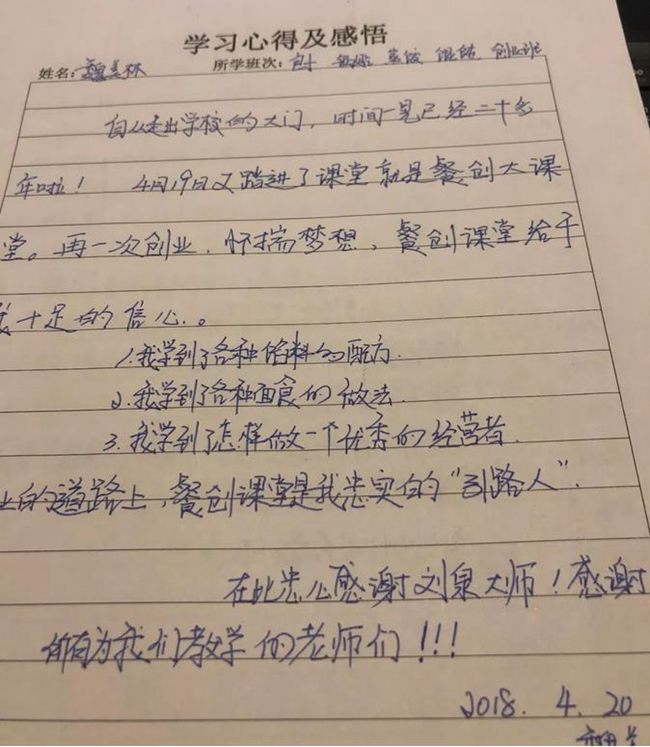 学习心得及感悟
姓名: 魏 林 所学班次: 创业班
自从走出学校的大门，时间一晃已经二十多
年啦！ 4月19日又踏进了课堂就是餐创大课
堂。再一次创业，怀揣梦想，餐创课堂给予
我十足的信心。
1.我学到了各种馅料的配方.
2.我学到了各种面食的做法.
3.我学到了怎样做一个优秀的经营者.
业的道路上，餐创课堂是我忠实的“引路人”.
在此衷心感谢刘泉大师！感谢
所有为我们教学的老师们！！！
2018. 4. 20